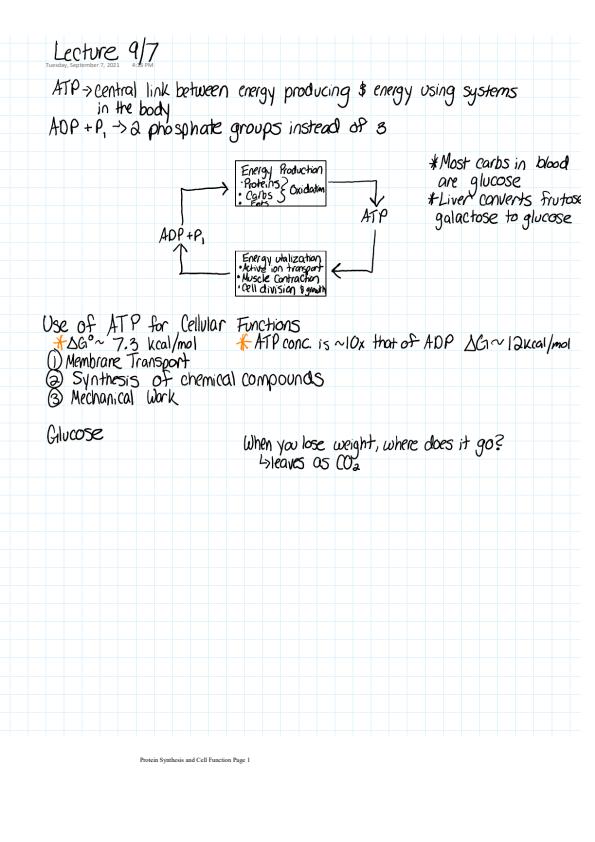 Lecture 9/7
Tuesday, September 7, 2021
ATP → Central link between energy producing & energy using systems
in the body
ADP + Pi → 2 phosphate groups instead of 3
Energy Production
• Proteins
• Carbs } Oxidation
• Fats
ATP
ADP + Pi
Energy utalization
• Active ion transport
• Muscle Contraction
• Cell division & growth
* Most carbs in blood
are glucose
* Liver converts frutose
galactose to glucose
Use of ATP for Cellular Functions
* ΔG° ~ 7.3 kcal/mol
* ATP conc. is ~10x that of ADP ΔG ~ 12 kcal/mol
① Membrane Transport
② Synthesis of chemical compounds
③ Mechanical Work
Glucose
When you lose weight, where does it go?
↳ leaves as CO₂
Protein Synthesis and Cell Function Page 1